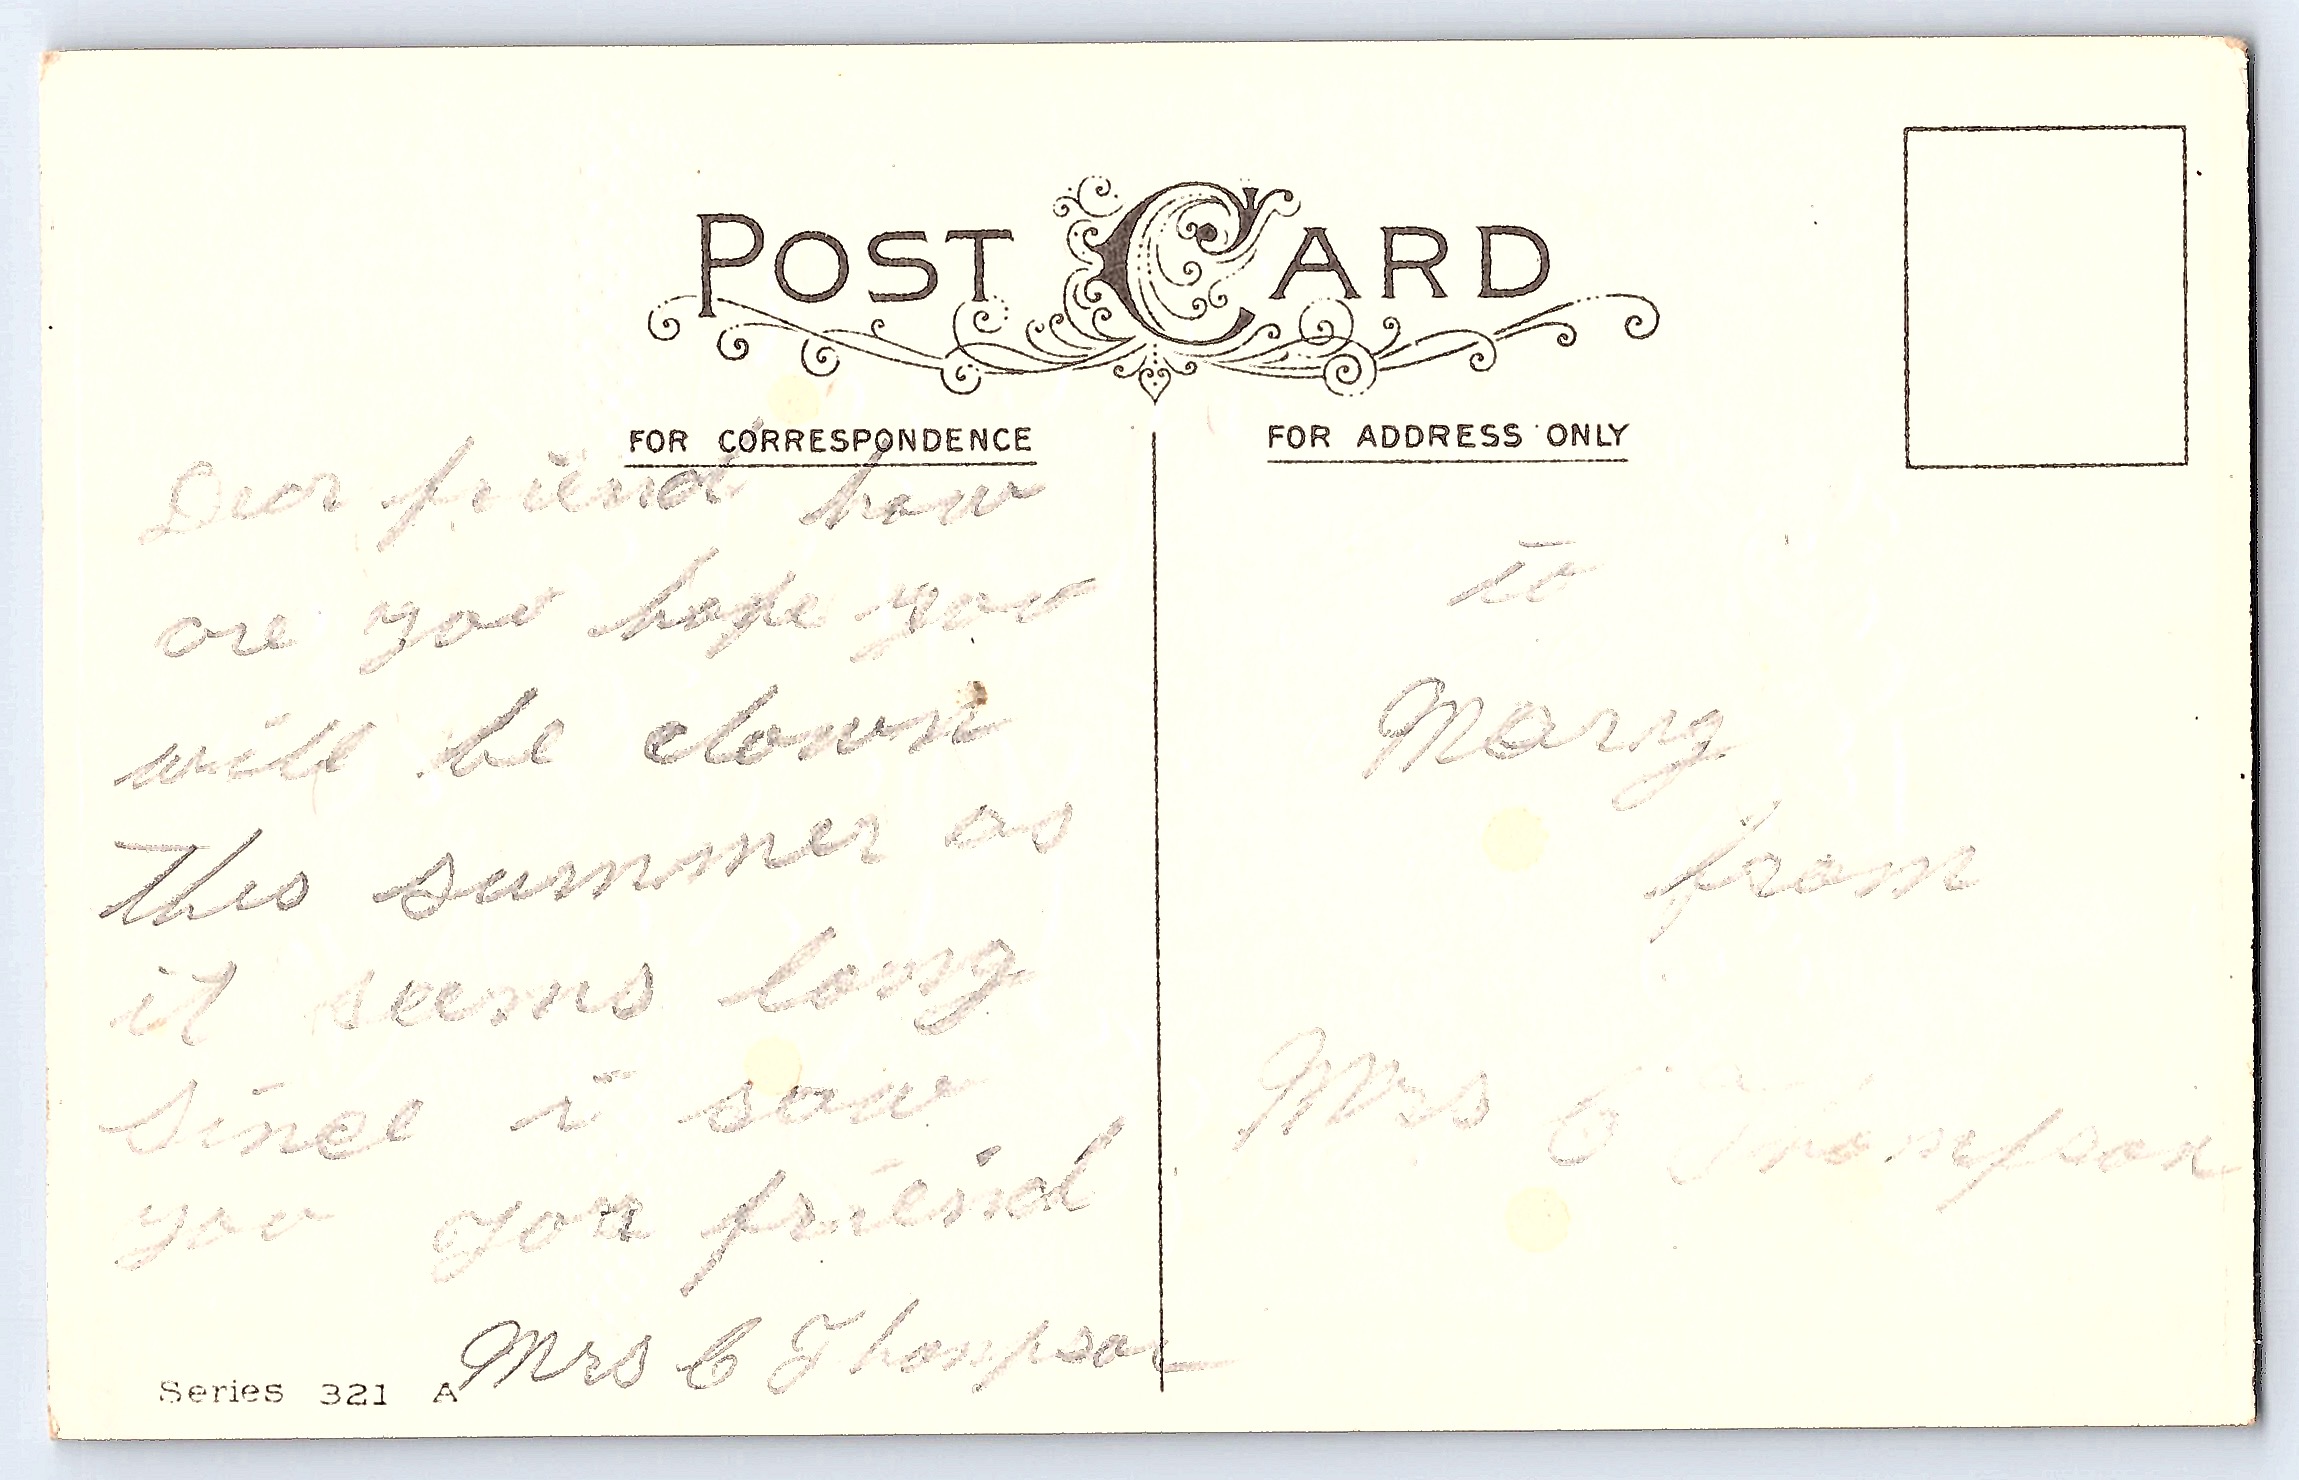 POST CARD
FOR CORRESPONDENCE
Dear friend how
are you hope you
will be down
This summer as
it seems long
since i saw
you your friend
Mrs C Thompson
Series 321 A
FOR ADDRESS ONLY
to
Mary
from
Mrs C Thompson